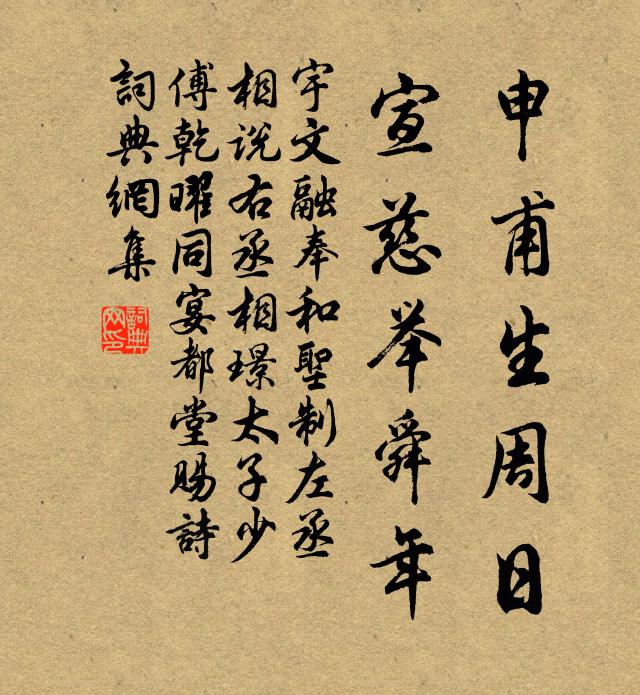 申甫生周日
宣慈举舜年
宇文融奉和聖制左丞
相说右丞相璟太子少
傅乾曜同宴都堂賜詩
詞典網集
詞典
网印